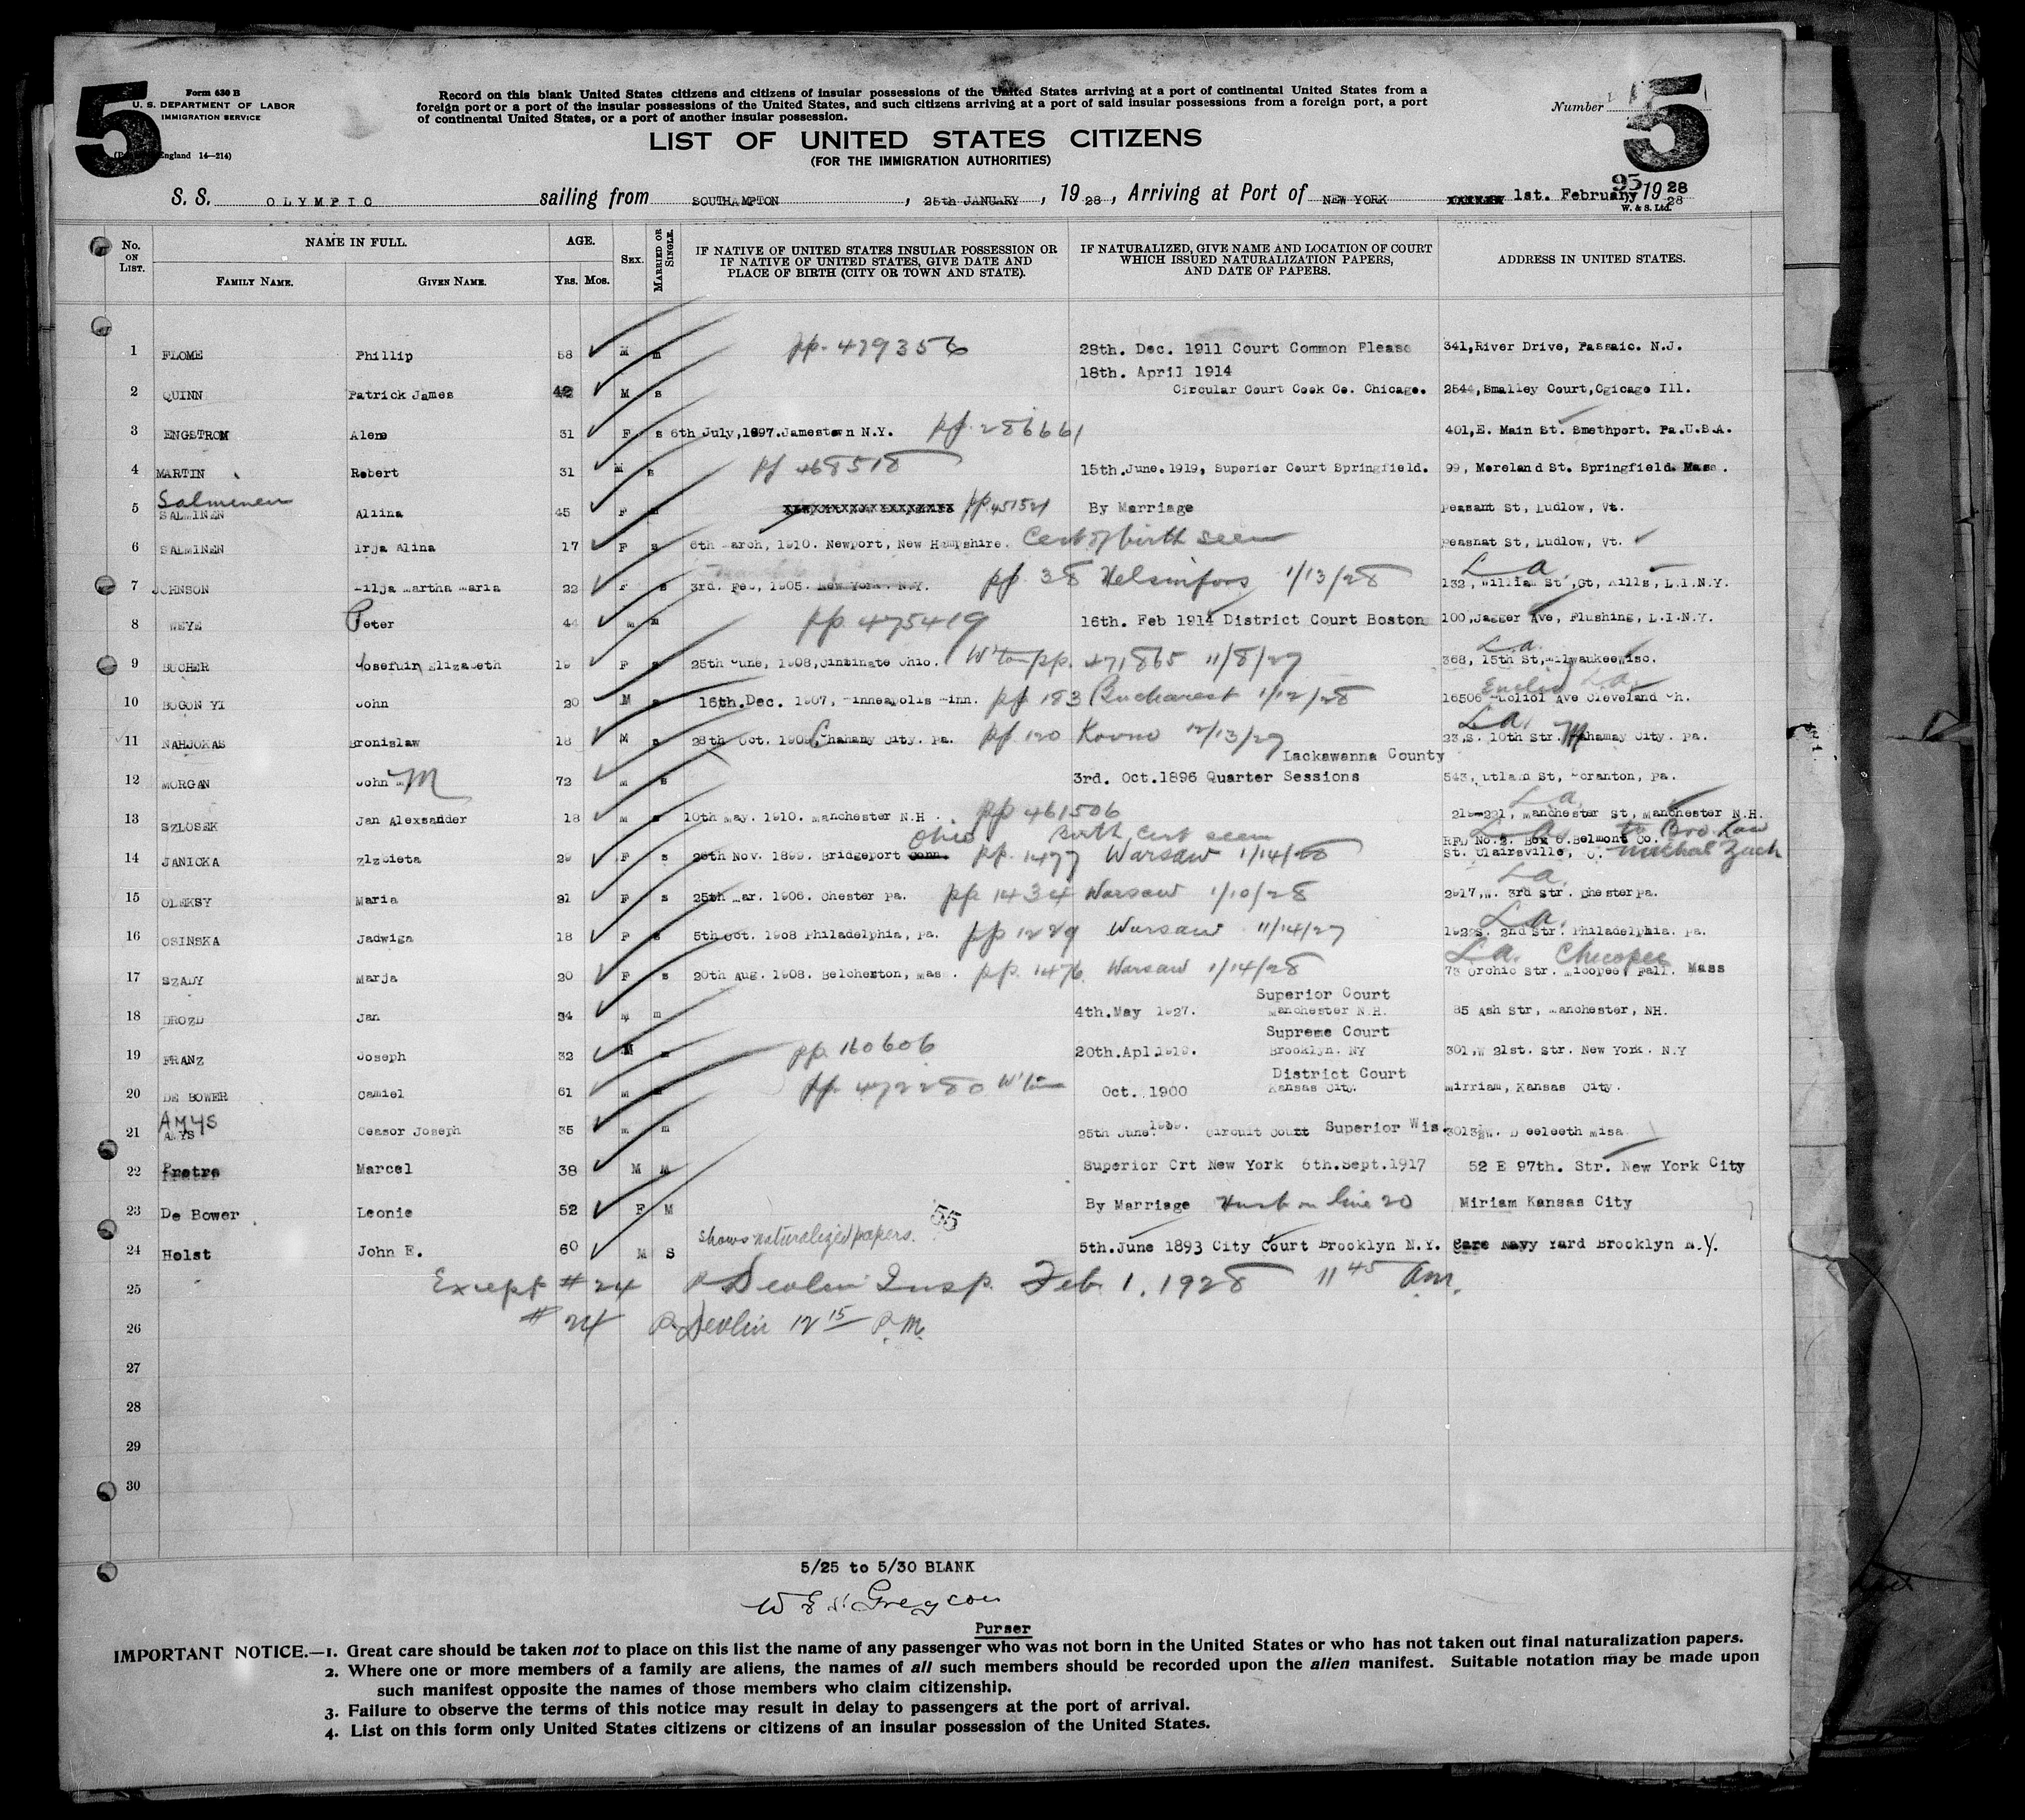 5
Form 630 B
U. S. DEPARTMENT OF LABOR
IMMIGRATION SERVICE
England 14—214)
Record on this blank United States citizens and citizens of insular possessions of the United States arriving at a port of continental United States from a
foreign port or a port of the insular possessions of the United States, and such citizens arriving at a port of said insular possessions from a foreign port, a port
of continental United States, or a port of another insular possession.
LIST OF UNITED STATES CITIZENS
(FOR THE IMMIGRATION AUTHORITIES)
Number
5
95
S. S. OLYMPIC sailing from SOUTHAMPTON, 25th JANUARY, 1928, Arriving at Port of NEW YORK 1st. February 1928
28
W. & S. Ltd.
No. ON LIST.
NAME IN FULL.
FAMILY NAME.
GIVEN NAME.
AGE.
YRS. MOS.
SEX.
MARRIED OR SINGLE.
IF NATIVE OF UNITED STATES INSULAR POSSESSION OR
IF NATIVE OF UNITED STATES, GIVE DATE AND
PLACE OF BIRTH (CITY OR TOWN AND STATE).
IF NATURALIZED, GIVE NAME AND LOCATION OF COURT
WHICH ISSUED NATURALIZATION PAPERS,
AND DATE OF PAPERS.
ADDRESS IN UNITED STATES.
1 FLOME Phillip 58 M m pp. 479356 28th. Dec. 1911 Court Common Please 341,River Drive, Passaic. N.J.
18th. April 1914
2 QUINN Patrick James 42 M s Circular Court Cook Co. Chicago. 2544,Smalley Court,Cgicage Ill.
3 ENGSTROM Alene 31 F s 6th July,1897.Jamestown N.Y. pp. 286661 401,E. Main St. Smethport. Pa.U.S.A.
4 MARTIN Robert 31 M s pp 468518 15th.June.1919, Superior Court Springfield. 99, Moreland St. Springfield. Mass.
Salminen
5 SALMINEN Aliina 45 F m pp.451521 By Marriage Peasant St, Ludlow, Vt.
6 SALMINEN Irja Alina 17 F s 6th March, 1910. Newport, New Hampshire. Cert of birth seen Peasnat St, Ludlow, Vt.
La
7 JOHNSON Lilja Martha Maria 22 F s 3rd. Feb, 1905. New York. N.Y. pp. 38 Helsinfors 1/13/28 132, William St ,Gt, Mills, L.I.N.Y.
8 WEYE Peter 44 m m pp 475419 16th. Feb 1914 District Court Boston 100,Jagger Ave, Flushing, L.I.N.Y.
La.
9 BUCHER Josefuin Elizabeth 19 F s 25th June, 1908,Cinbinate Ohio. W'ton pp. 471,865 11/8/27 368, 15th St,Milwaukeewisc.
Euclid La.
10 BOGON YI John 20 M s 16th.Dec. 1907, Minneapolis Minn. pp 183 Bucharest 1/12/28 16506 Ave Cleveland Oh.
La.
11 NAHJOKAS Bronislaw 18 M s 28th Oct. 1909, Chahany City. Pa. pp 120 Kovno 12/13/27 23,S. 10th Str. Mahamay City. Pa.
Lackawanna County
12 MORGAN John M 72 m s 3rd. Oct.1896 Quarter Sessions 543, St, Scranton, Pa.
La.
13 SZLOSEK Jan Alexsander 18 m s 10th May. 1910. Manchester N.H. pp 461506 219-221, Manchester St, Manchester N.H.
Birth Cert seen
Ohio
La. to Bro. Law
RFD No.2. Box 6.Belmont Co.
14 JANICKA Elzbieta 29 F s 25th Nov. 1899. Bridgeport Conn. pp. 1477 Warsaw 1/14/28 St. Clairsville, O. Michal Zuch
La.
15 OLEKSY Maria 21 F s 25th Mar. 1906. Chester Pa. pp 1434 Warsaw 1/10/28 2917,W. 3rd Str. Chester Pa.
La.
16 OSINSKA Jadwiga 18 F s 5th Oct. 1908 Philadelphia, Pa. pp 1229 Warsaw 11/14/27 1922S. 2nd Str. Philadelphia. Pa.
La. Chicopee
17 SZADY Marja 20 F s 20th Aug. 1908. Belcherton, Mas. pp. 1476 Warsaw 1/14/28 73 Orchic Str. Micopee Fall. Mass
Superior Court
18 DROZD Jan 34 M m 4th.May 1927. Manchester N.H. 85 Ash Str, Manchester, NH.
Supreme Court
19 FRANZ Joseph 32 M m pp. 160606 20th.Apl.1919. Brooklyn. NY 301,W 21st. Str. New York. N.Y
District Court
20 DE BOWER Camiel 61 m m pp. 472280 W'ton Oct. 1900 Kansas City. Mirriam, Kansas City.
AMYS
21 AMYS Ceasor Joseph 35 m m 25th June. Circuit Court Superior Wis. W.
22 Pretre Marcel 38 M M Superior Crt New York 6th.Sept.1917 52 E 97th. Str. New York City
23 De Bower Leonie 52 F M By Marriage Husb on line 20 Miriam Kansas City
55
shows naturalized papers.
24 Holst John E. 60 M S 5th.June 1893 City Court Brooklyn N.Y. Care Navy Yard Brooklyn N.Y.
25 Except #24 P Devlin Insp. Feb. 1, 1928 11 45 am.
26 #24 P Devlin 12 15 P.M.
27
28
29
30
5/25 to 5/30 BLANK
Purser
IMPORTANT NOTICE.—1. Great care should be taken not to place on this list the name of any passenger who was not born in the United States or who has not taken out final naturalization papers.
2. Where one or more members of a family are aliens, the names of all such members should be recorded upon the alien manifest. Suitable notation may be made upon
such manifest opposite the names of those members who claim citizenship.
3. Failure to observe the terms of this notice may result in delay to passengers at the port of arrival.
4. List on this form only United States citizens or citizens of an insular possession of the United States.